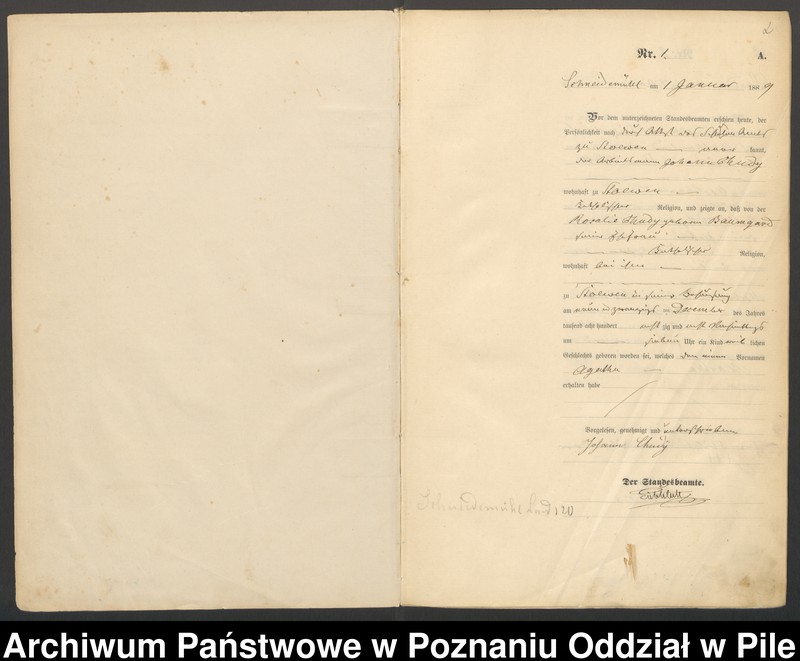 2
Nr. 1. A.
Schneidemühl am 1 Januar 1889
Vor dem unterzeichneten Standesbeamten erschien heute, der
Persönlichkeit nach durch Attest des Schulzen Amts
zu Stoewen — aner kannt,
der Arbeitsmann Johann Chudy
wohnhaft zu Stoewen —
katholischer Religion, und zeigte an, daß von der
Rosalie Chudy geborne Baumgard
seiner Ehefrau —
— katholischer Religion,
wohnhaft bei ihm —
zu Stoewen in seiner Behausung
am neun u zwanzigst en December des Jahres
tausend acht hundert acht zig und acht
um — Uhr ein Kind weib lichen
Geschlechts geboren worden sei, welches den einen Vornamen
Agatha —
erhalten habe
Vorgelesen, genehmigt und unterschrieben
Johann Chudy
Der Standesbeamte.
Schneidemühl Land 120
Archiwum Państwowe w Poznaniu Oddział w Pile